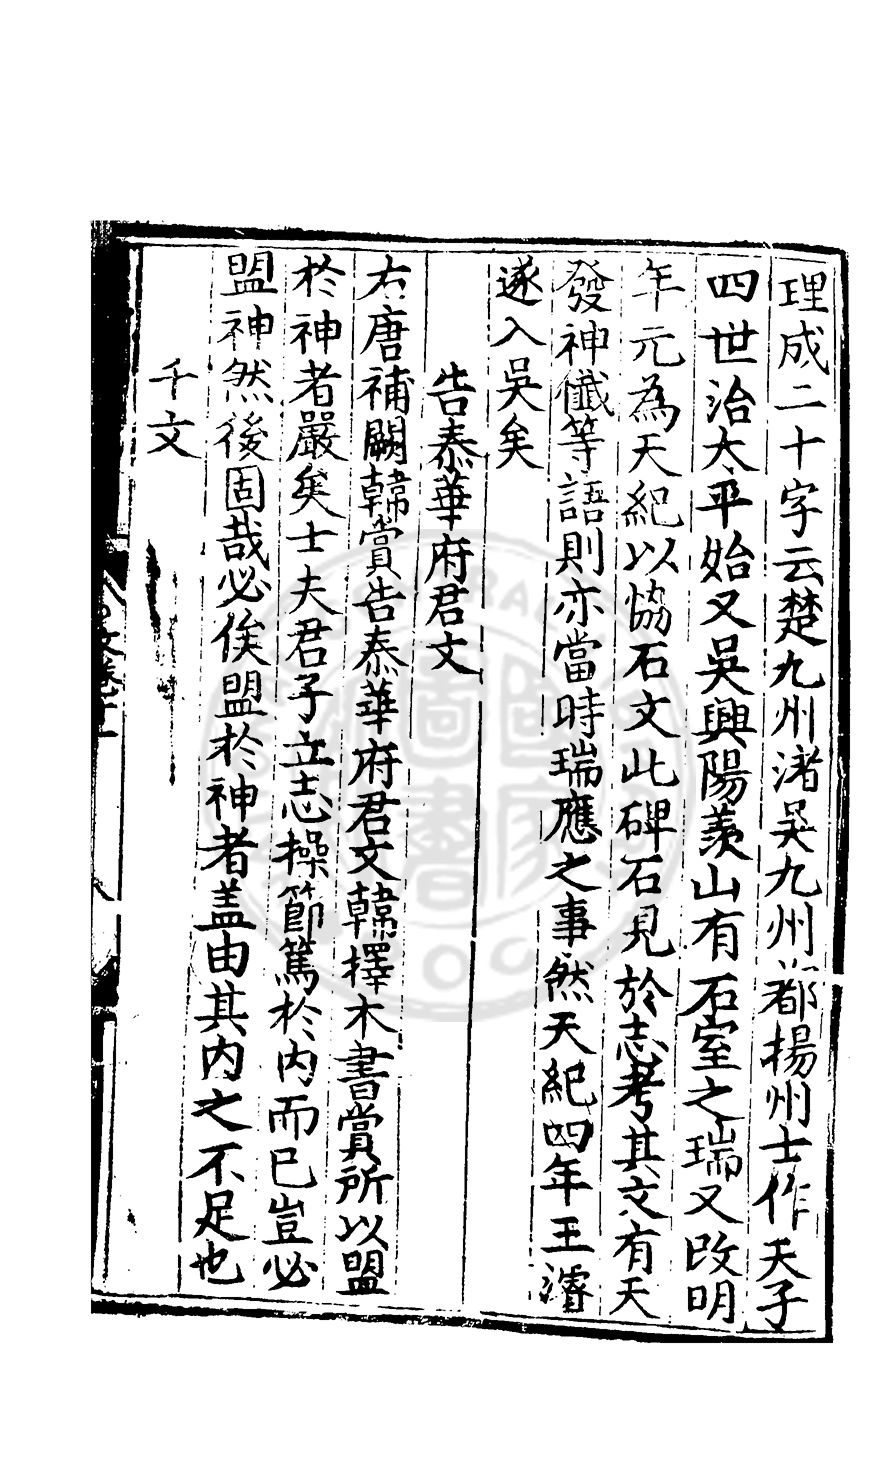 理成二十字云楚九州渚吳九州都揚州士作天子
四世治太平始又吳興陽羨山有石室之瑞又改明
年元為天紀以協石文此碑石見於志考其文有天
發神懺等語則亦當時瑞應之事然天紀四年王濬
遂入吳矣
告泰華府君文
右唐補闕韓賞告泰華府君文韓擇木書賞所以盟
於神者嚴矣士夫君子立志操節篤於內而已豈必
盟神然後固哉必俟盟於神者盖由其內之不足也
千文